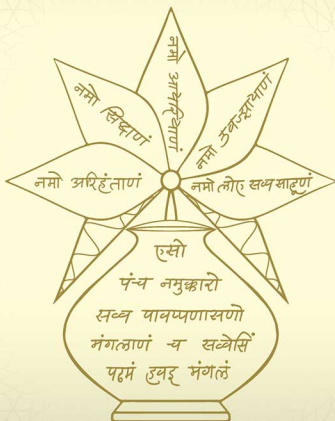 नमो अरिहंताणं
नमो सिद्धाणं
नमो आयरियाणं
नमो उवज्झायाणं
नमो लोए सव्व साहूणं
एसो
पंच नमुक्कारो
सव्व पावप्पणासणो
मंगलाणं च सव्वेसिं
पढमं हवइ मंगलं